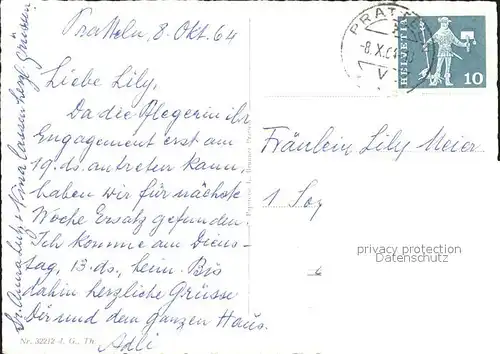 Pratteln, 8. Okt. 64
Liebe Lily,
Da die Pflegerin ihr
Engagement erst am
19. ds. antreten kann,
haben wir für nächste
Woche Ersatz gefunden.
Ich komme am Diens-
tag, 13. ds., heim. Bis
dahin herzliche Grüsse
Dir und dem ganzen Haus.
Adli
Nina lassen herzl. Grüssen
Nr. 32212 J. G., Th.
PRATTELN
-8.X.64
HELVETIA
10
Fräulein Lily Meier
privacy protection
Datenschutz